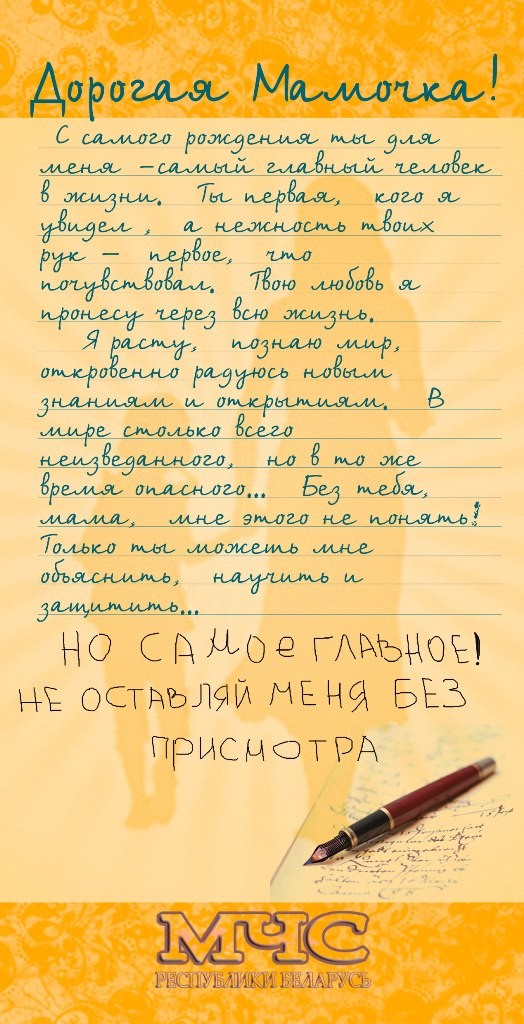 Дорогая Мамочка!
С самого рождения ты для
меня –самый главный человек
в жизни. Ты первая, кого я
увидел , а нежность твоих
рук – первое, что
почувствовал. Твою любовь я
пронесу через всю жизнь.
Я расту, познаю мир,
откровенно радуюсь новым
знаниям и открытиям. В
мире столько всего
неизведанного, но в то же
время опасного... Без тебя,
мама, мне этого не понять!
Только ты можешь мне
объяснить, научить и
защитить...
НО САМОЕ ГЛАВНОЕ!
НЕ ОСТАВЛЯЙ МЕНЯ БЕЗ
ПРИСМОТРА
МЧС
РЕСПУБЛИКИ БЕЛАРУСЬ